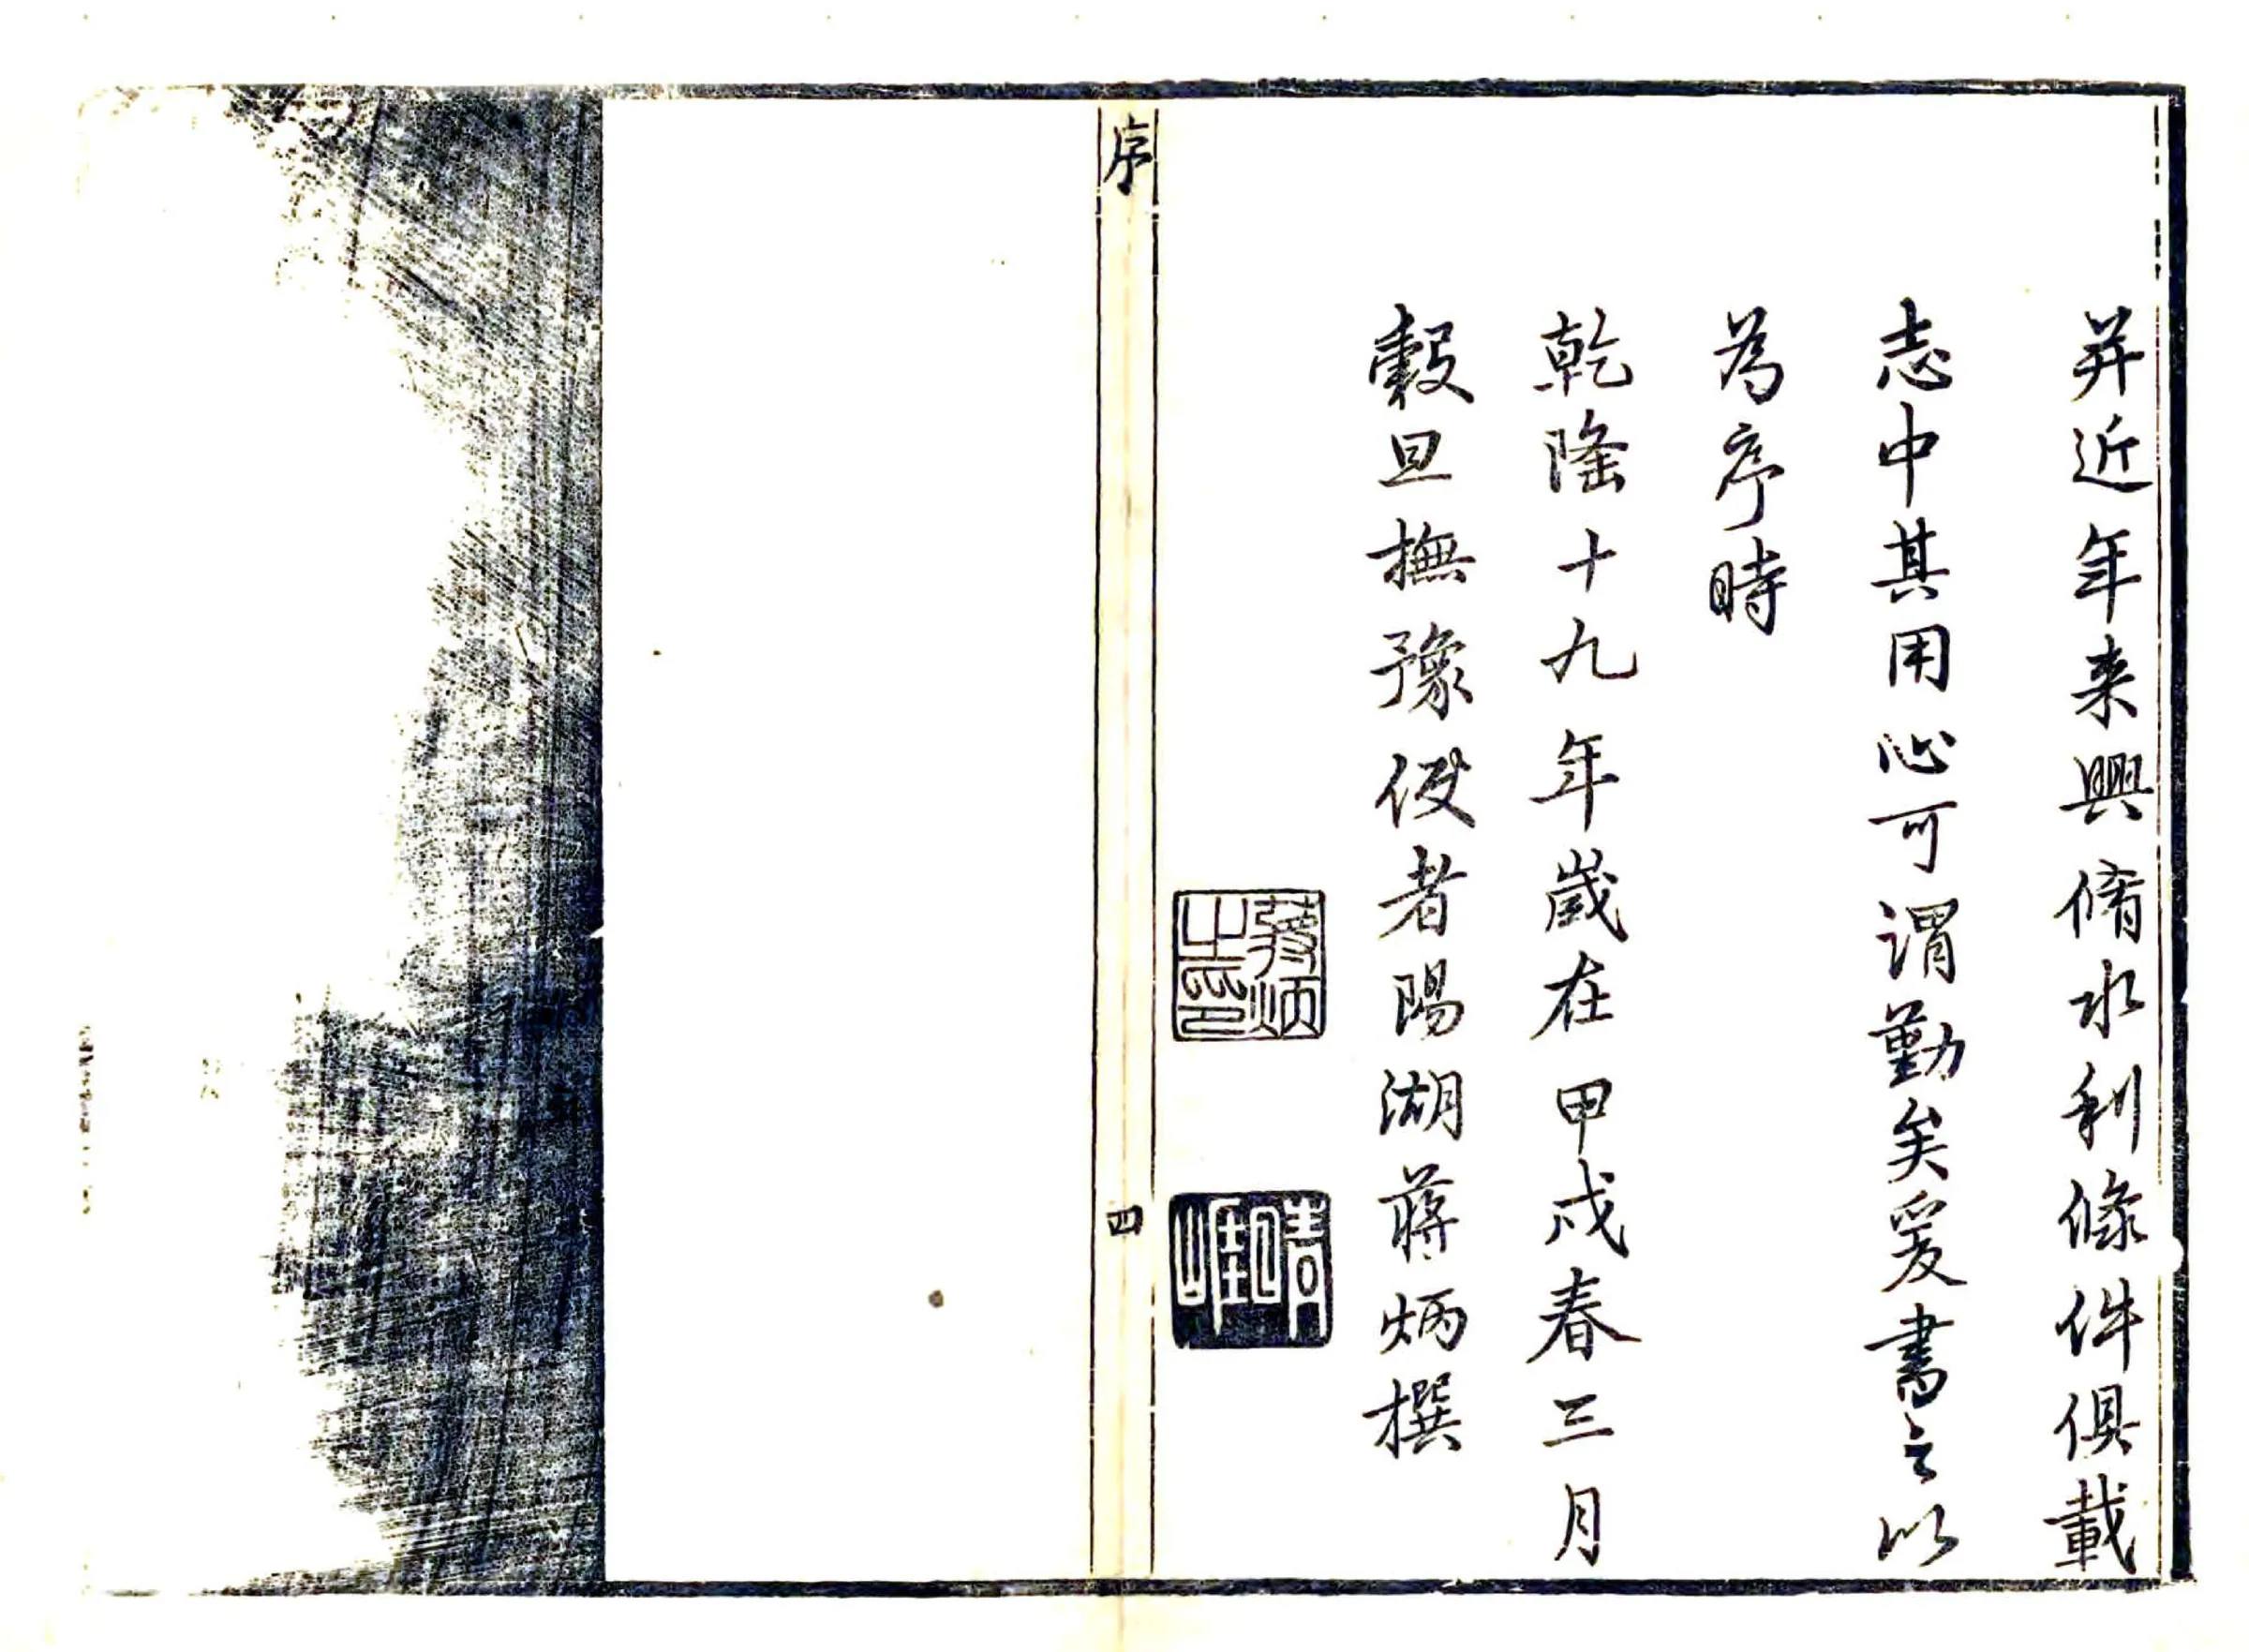 并近年来興脩水利條件俱載
志中其用心可謂勤矣爰書之以
為序時
乾隆十九年歲在甲戌春三月
穀旦撫豫使者陽湖蔣炳撰
蔣炳之印
晴崖
序
四